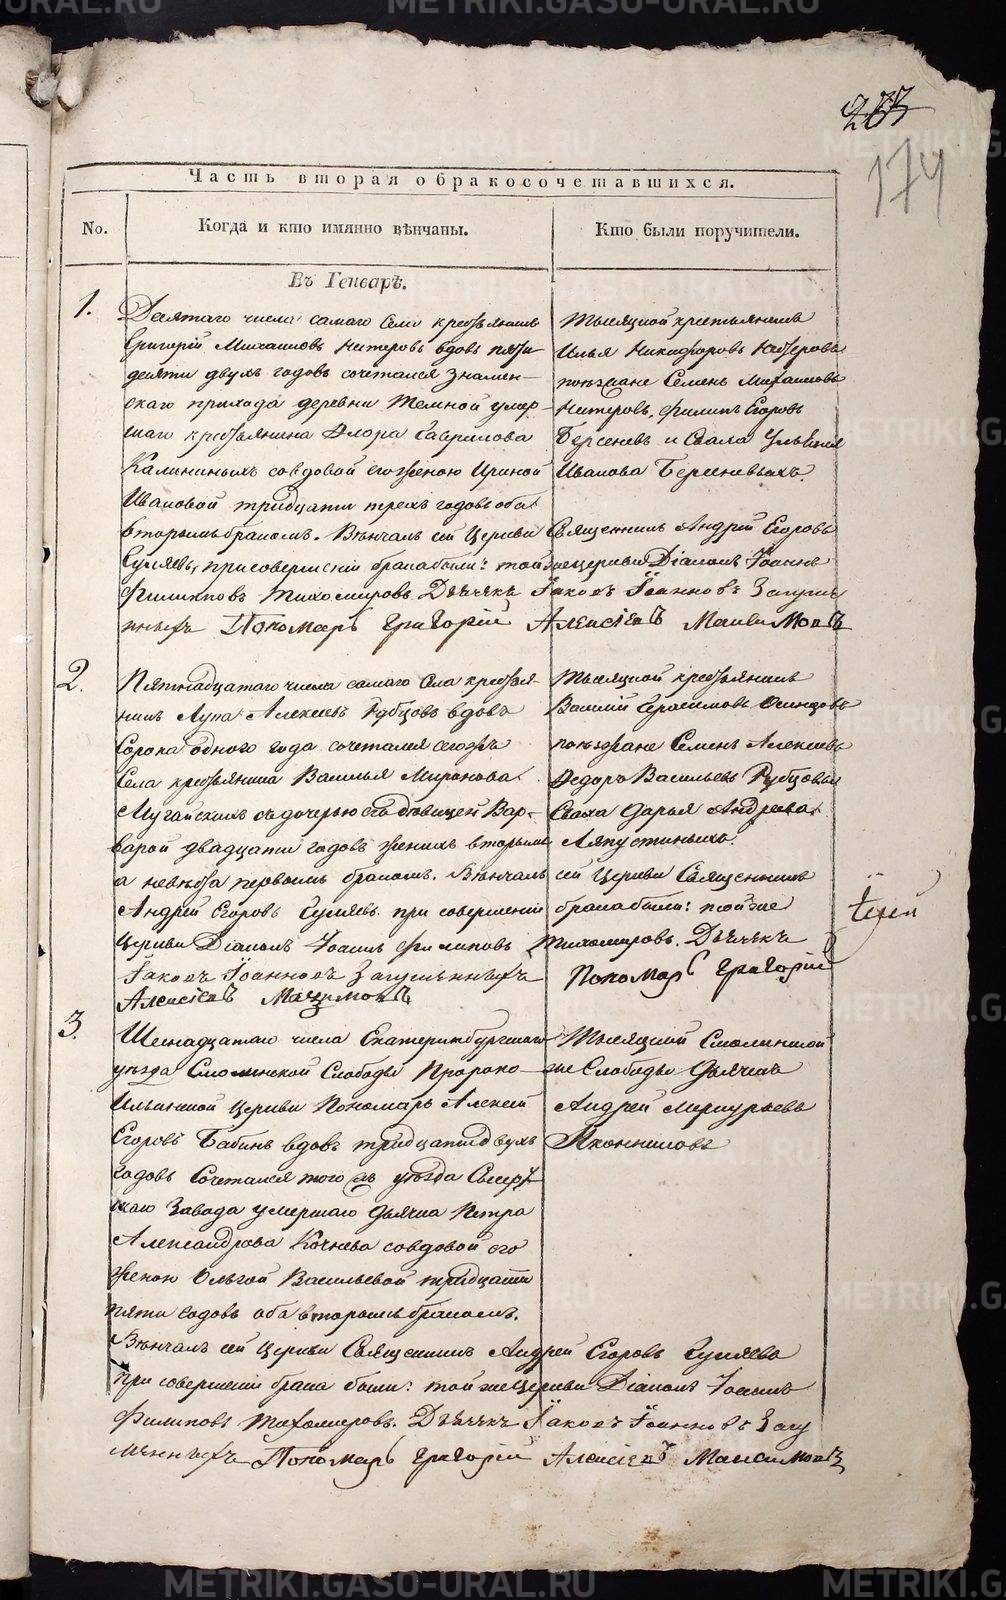 273
174
Часть вторая о бракосочетавшихся.
No.
Когда и кто имянно вѣнчаны.
Кто были поручители.
Въ Генварѣ.
1.
Десятаго числа самаго села крестьянинъ
Григорій Михаиловъ вдовъ пяти
десяти двухъ годовъ сочетался Знамен-
скаго прихода деревни Темной умер-
шаго крестьянина Флора Гаврилова
Калининыхъ совдовой его женою Ириной
Ивановой тридцати трехъ годовъ оба
вторымъ бракомъ. Вѣнчалъ сей Церкви
Священникъ Андрей Егоровъ
при совершеніи брака были: той же церкви Діаконъ Іоаннъ
Филипповъ Тихомировъ Дьячекъ Іаковъ Іоанновъ
Пономарь Григорій Алексіевъ
Тысяцкой крестьянинъ
Илья Никифоровъ
поѣзжане Семенъ Михаиловъ
Филипъ Егоровъ
Берсеневъ и Сваха Ульяна
Иванова Берсеневыхъ.
2.
Пятнадцатаго числа самаго села крестья-
нинъ Лука Алексеевъ Рубцовъ вдовъ
сорока одного года сочетался сегожъ
села крестьянина Василья Миронова
Мугайскихъ съ дочерью его дѣвицей Вар-
варой двадцати годовъ женихъ вторымъ
а невѣста первымъ бракомъ. Вѣнчалъ сей Церкви Священникъ
Андрей Егоровъ при совершеніи брака были: той же
Церкви Діаконъ Іоаннъ Филиповъ Тихомировъ. Дьячекъ
Іаковъ Іоанновъ Пономарь Григорій
Алексіевъ
Тысяцкой крестьянинъ
Василій Герасимовъ
поѣзжане Семенъ Алексеевъ
Федоръ Васильевъ Рубцовы
Сваха Дарья Андреева
Ляпустиныхъ.
3.
Шестнадцатаго числа Екатеринбургскаго
уѣзда Смолинской Слободы Пророко-
Ильинской церкви Пономарь Алексей
Егоровъ Бабинъ вдовъ тридцати двухъ
годовъ Сочетался того жъ уѣзда
скаго Завода умершаго дьячка Петра
Александрова Кочнева совдовой его
женою Ольгой Васильевой тридцати
пяти годовъ оба вторымъ бракомъ.
Вѣнчалъ сей Церкви Священникъ Андрей Егоровъ
при совершеніи брака были: той же церкви Діаконъ Іоаннъ
Филиповъ Тихомировъ. Дьячекъ Іаковъ Іоанновъ
Пономарь Григорій Алексіевъ
Тысяцкой Смолинской
же Слободы Дьячекъ
Андрей Меркурьевъ
Иконниковъ
METRIKI.GASO-URAL.RU